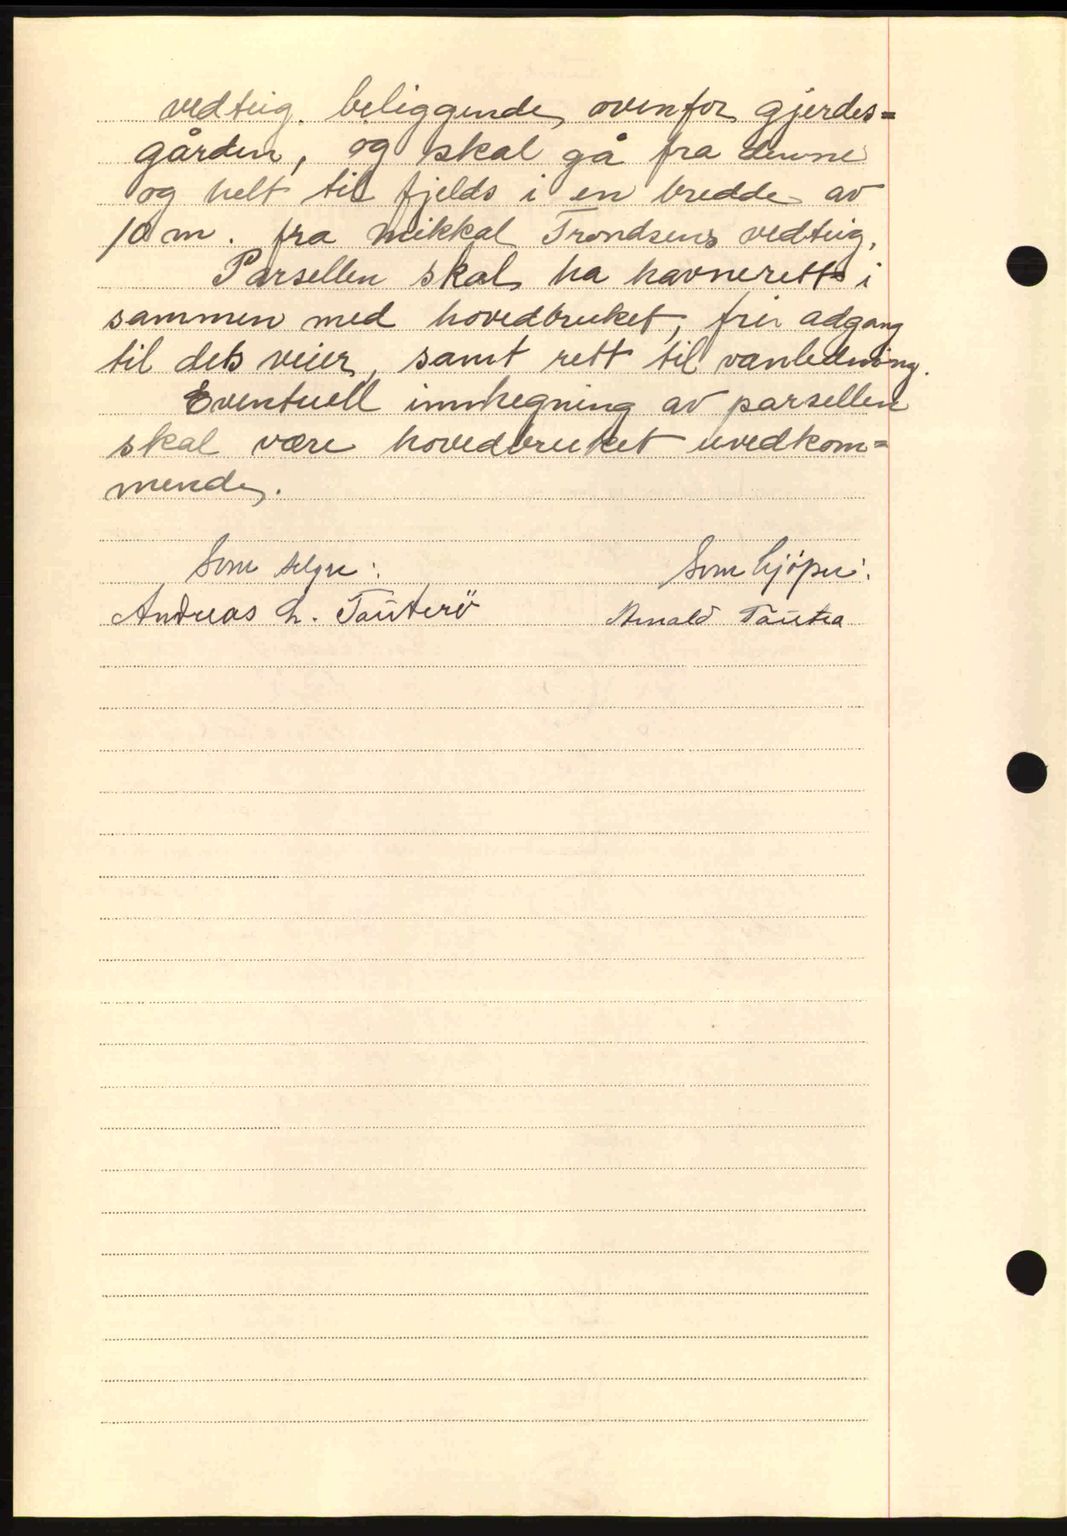 vedteig. beliggende ovenfor gjerdes=
gården, og skal gå fra denne
og helt til fjelds i en bredde av
10 m. fra Mikkal Trondsens vedteig.
Parsellen skal ha havnerett i
sammen med hovedbruket, fri adgang
til dets veier, samt rett til vanledning.
Eventuell innhegning av parsellen
skal være hovedbruket uvedkom=
mende.
Som selger:
Som kjøper:
Andreas L. Tauterö
Arnald Tautra